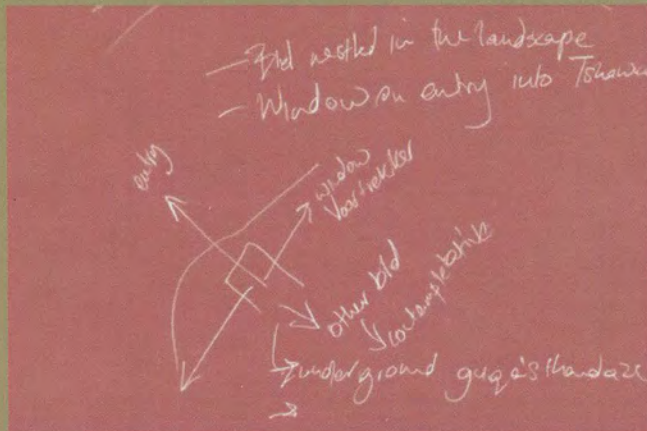 – Bld nestled in the landscape
– Window on entry into Tshwan
entry
window
Voortrekker
other bld
contemplative
underground guqa'sthandaze